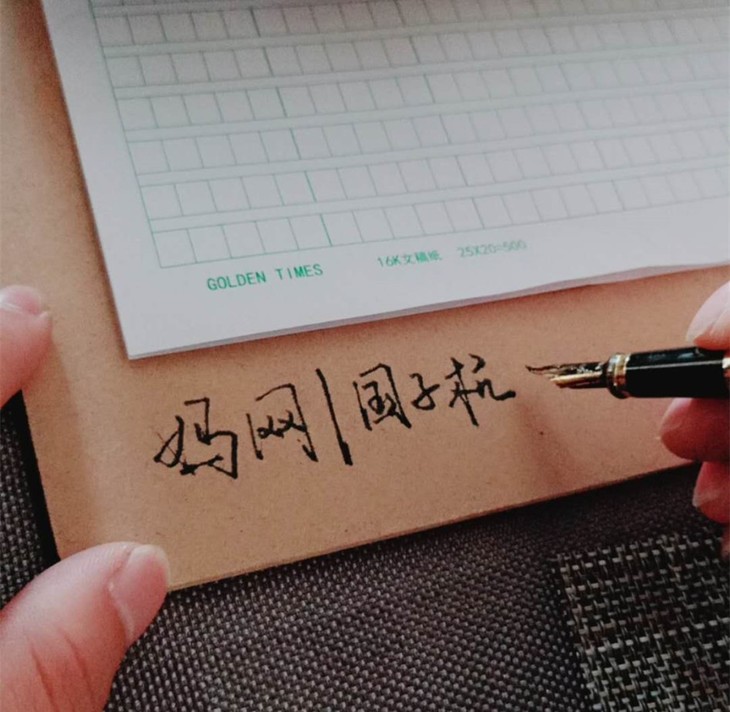 GOLDEN TIMES 16K文稿纸 25X20=500
妈网|国子杭